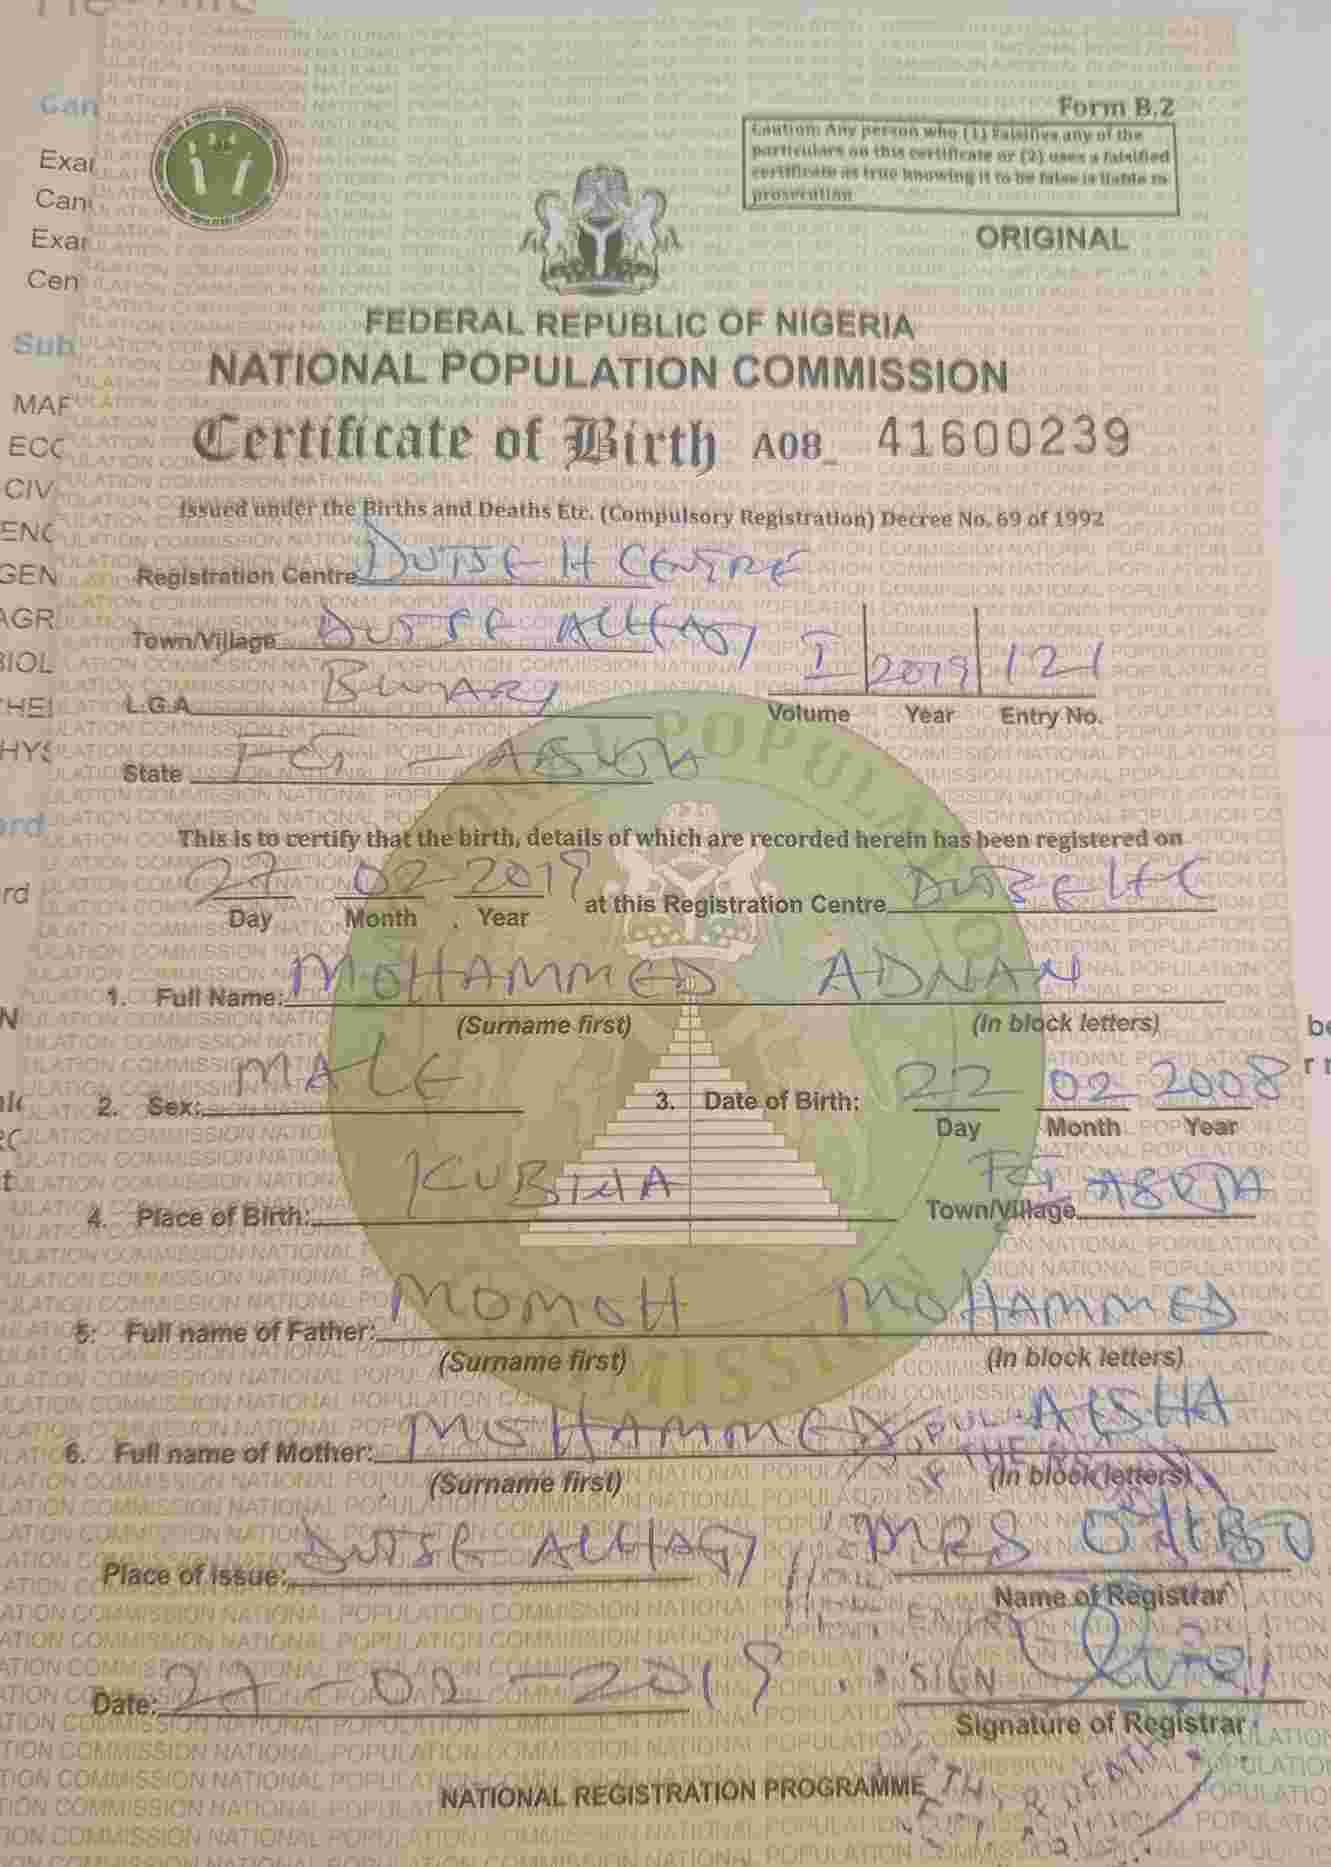 Form B.2
Caution: Any person who (1) Falsifies any of the
particulars on this certificate or (2) uses a falsified
certificate as true knowing it to be false is liable to
prosecution
ORIGINAL
FEDERAL REPUBLIC OF NIGERIA
NATIONAL POPULATION COMMISSION
Certificate of Birth A08_ 41600239
Issued under the Births and Deaths Etc. (Compulsory Registration) Decree No. 69 of 1992
Registration Centre DUTSE H CENTRE
Town/Village DUTSE ALHAJI
I 2019 121
Volume Year Entry No.
L.G.A BWARI
State FCT - ABUJA
This is to certify that the birth, details of which are recorded herein has been registered on
27 02 2019 at this Registration Centre DUTSE
Day Month Year
1. Full Name: MOHAMMED ADNAN
(Surname first) (In block letters)
2. Sex: MALE 3. Date of Birth: 22 02 2008
Day Month Year
4. Place of Birth: KUBWA Town/Village FCT ABUJA
5: Full name of Father: MOMOH MOHAMMED
(Surname first) (In block letters)
6. Full name of Mother: MOHAMMED AISHA
(Surname first) (In block letters)
Place of Issue: DUTSE ALHAJI MRS
Name of Registrar
Date: 27-02-2019 SIGN
Signature of Registrar
NATIONAL REGISTRATION PROGRAMME